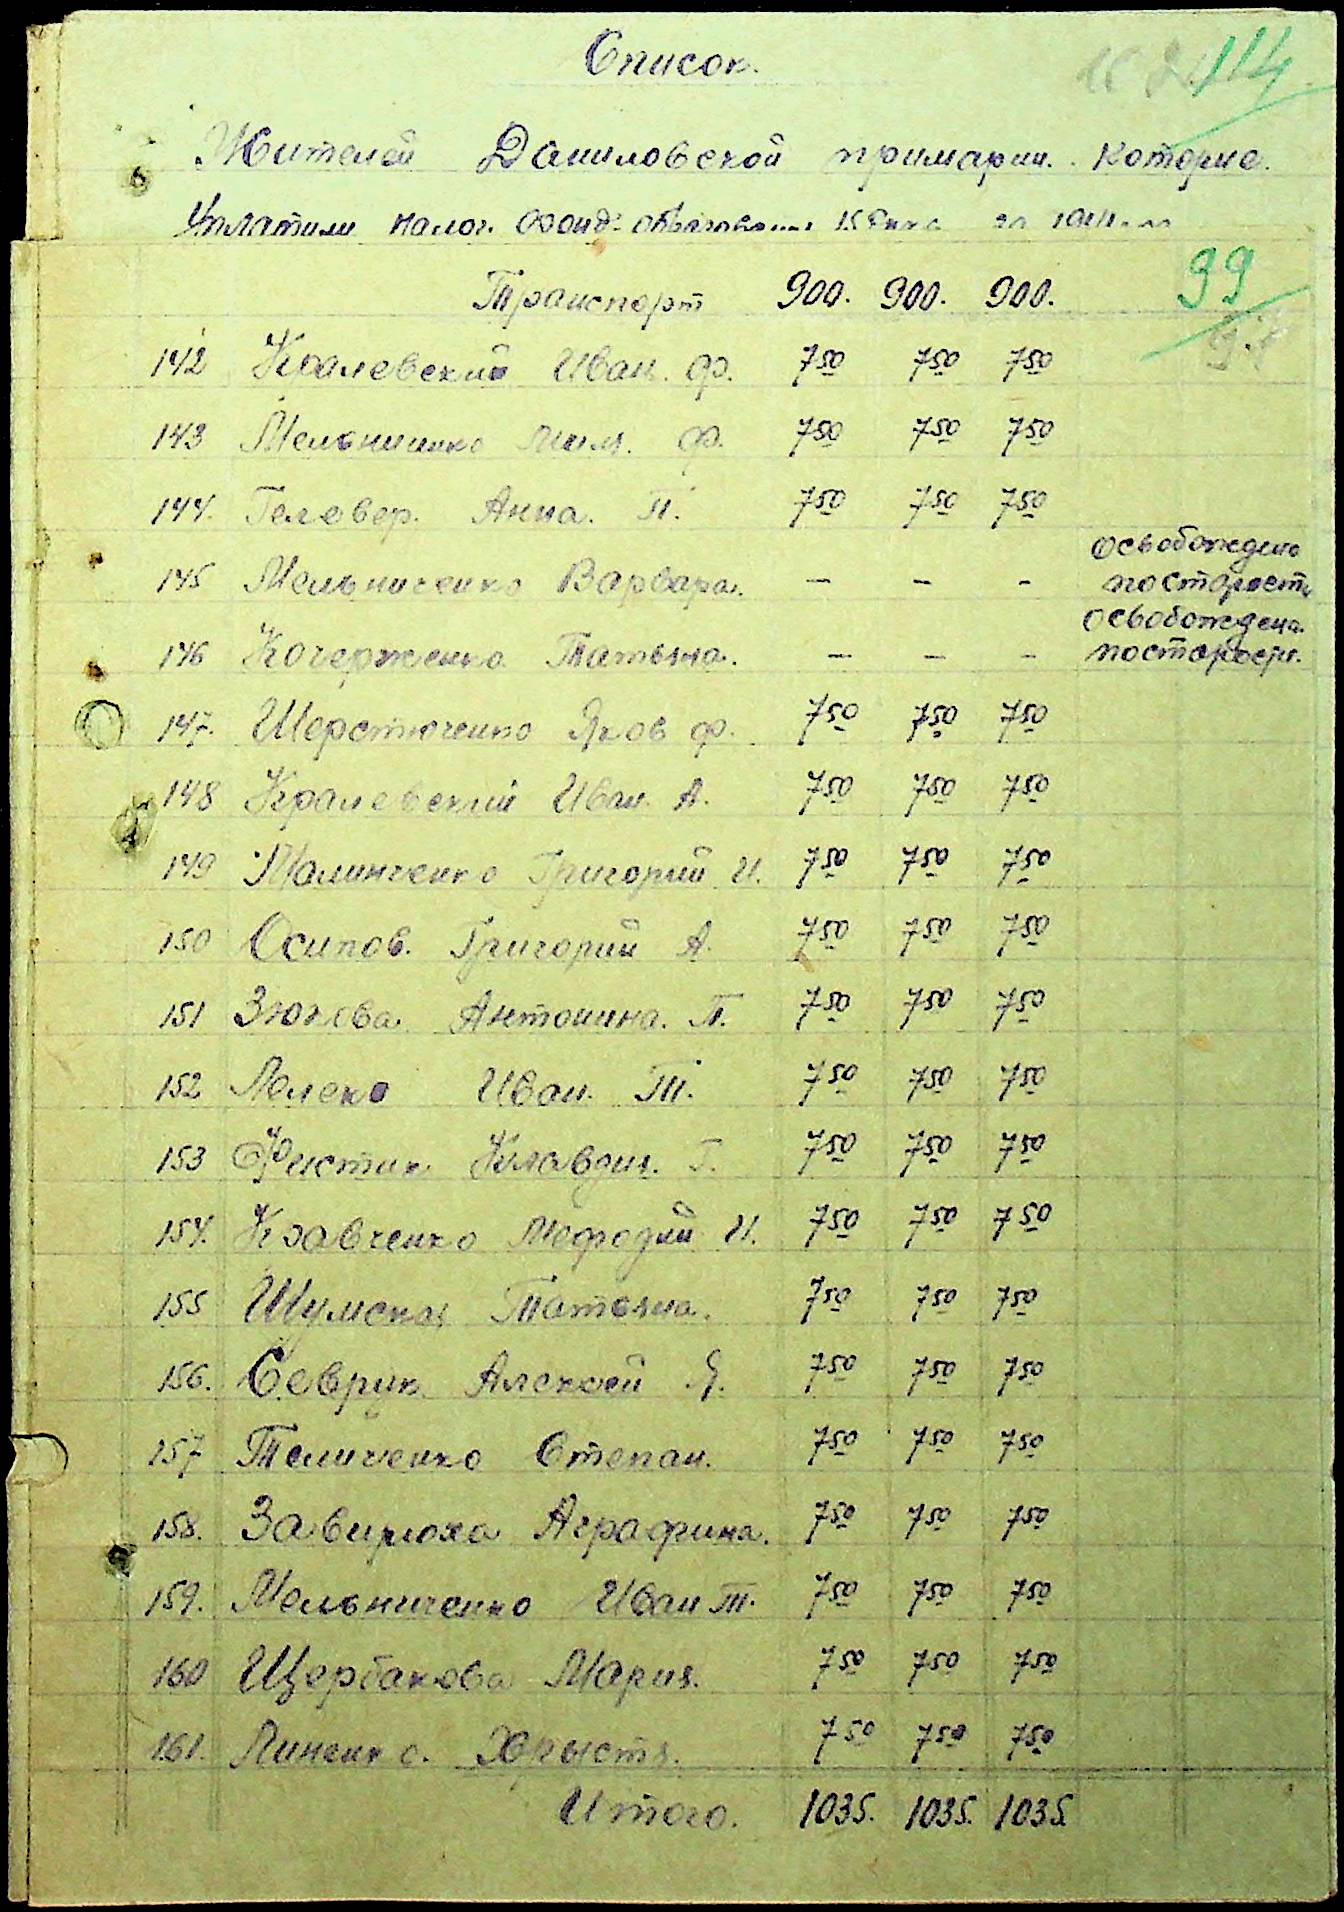 Список.
114
Жителей Даниловской примарии. которые.
Уплатили налог. фонд.
99
Транспорт 900. 900. 900.
142 Кралевский Иван. Ф. 7 50 7 50 7 50
143 Мельниченко Ф. 7 50 7 50 7 50
144. Гелевер. Анна. П. 7 50 7 50 7 50
освобождена
145 Мельниченко Варвара. - - - по старости
освобождена
146 Кочерженко Татьяна. - - - по старости.
147. Шерстюченко Яков Ф. 7 50 7 50 7 50
148 Кралевский Иван. А. 7 50 7 50 7 50
149 Малинченко Григорий И. 7 50 7 50 7 50
150 Осипов. Григорий А. 7 50 7 50 7 50
151 Антонина. П. 7 50 7 50 7 50
152 Лелеко Иван. Т. 7 50 7 50 7 50
153 Фистик Клавдия. Г. 7 50 7 50 7 50
154. Кравченко Мефодий И. 7 50 7 50 7 50
155 Шумская Татьяна. 7 50 7 50 7 50
156. Севрук Алексей Я. 7 50 7 50 7 50
157 Теличенко Степан. 7 50 7 50 7 50
158. Завирюха Аграфина. 7 50 7 50 7 50
159. Мельниченко Иван Т. 7 50 7 50 7 50
160 Щербакова Мария. 7 50 7 50 7 50
161. Линенко. Хрыстя. 7 50 7 50 7 50
Итого. 1035. 1035. 1035